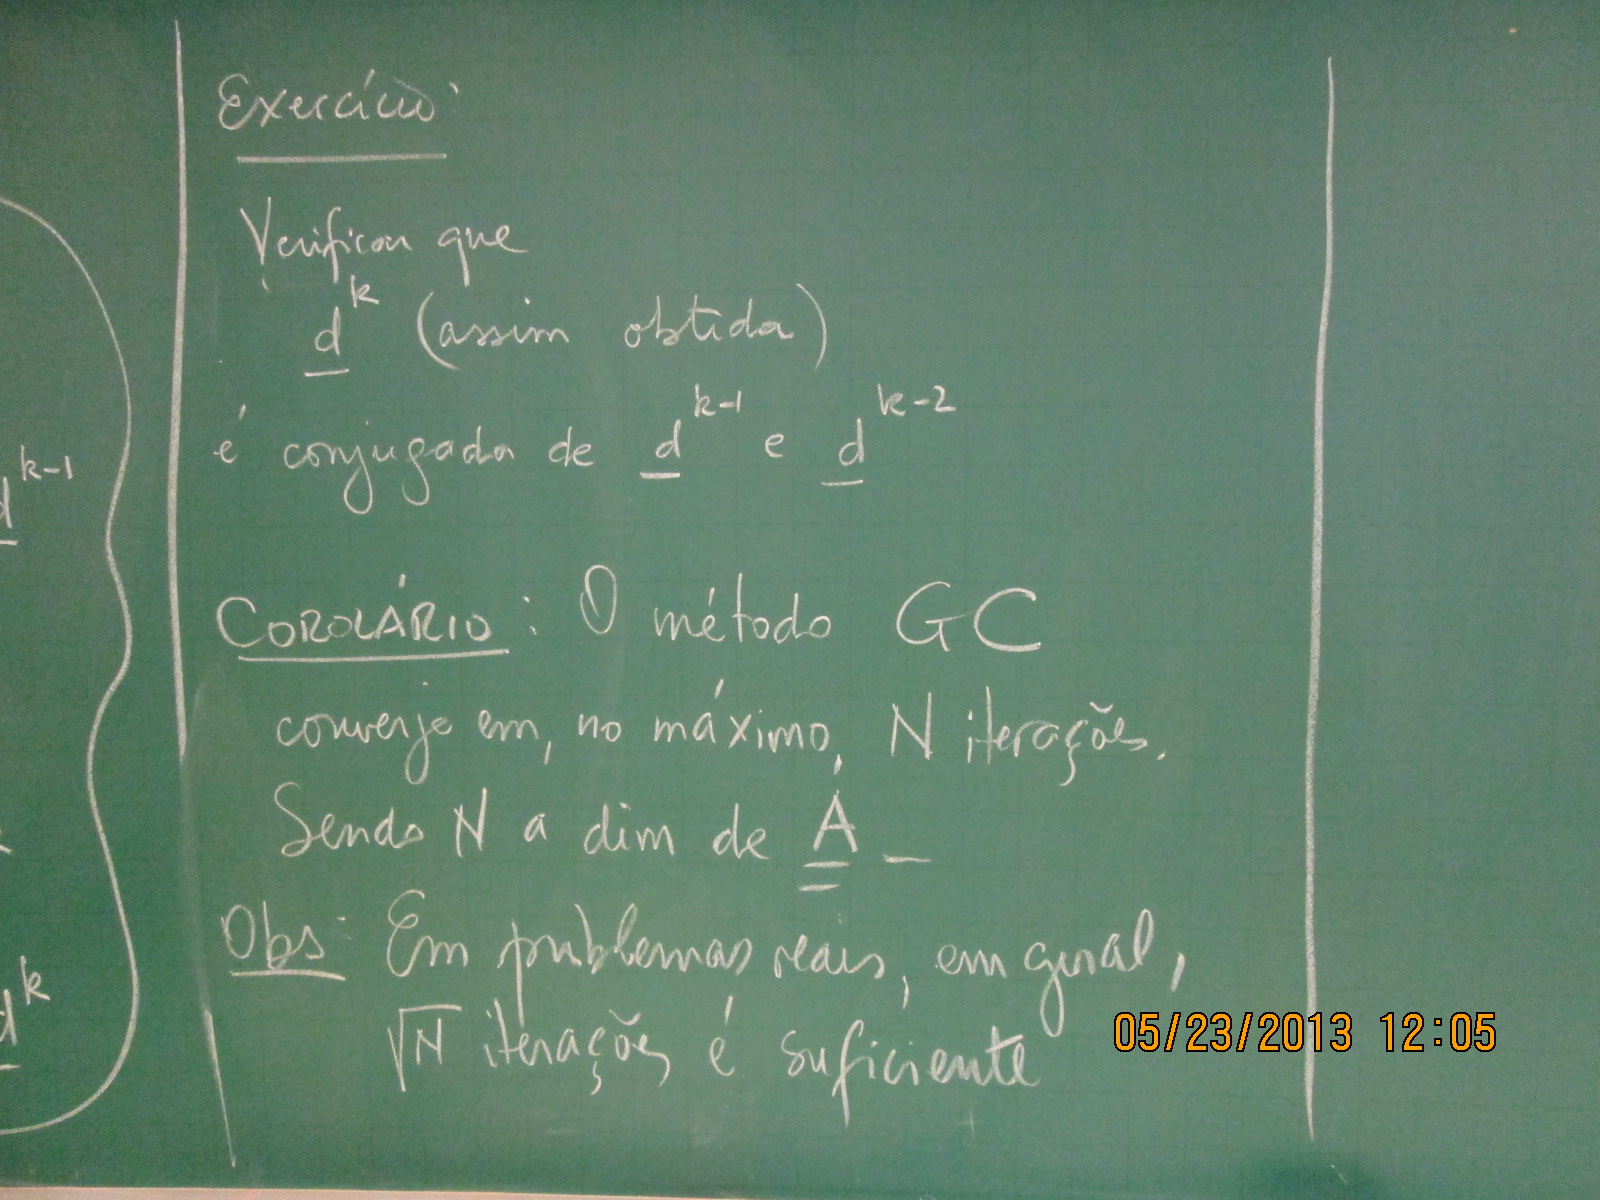 Exercício:
Verificar que
d^k (assim obtida)
é conjugada de d^k-1 e d^k-2
d^k-1
COROLÁRIO: O método GC
converje em, no máximo, N iterações.
Sendo N a dim de A —
Obs: Em problemas reais, em geral,
d^k
√N iterações é suficiente
05/23/2013 12:05